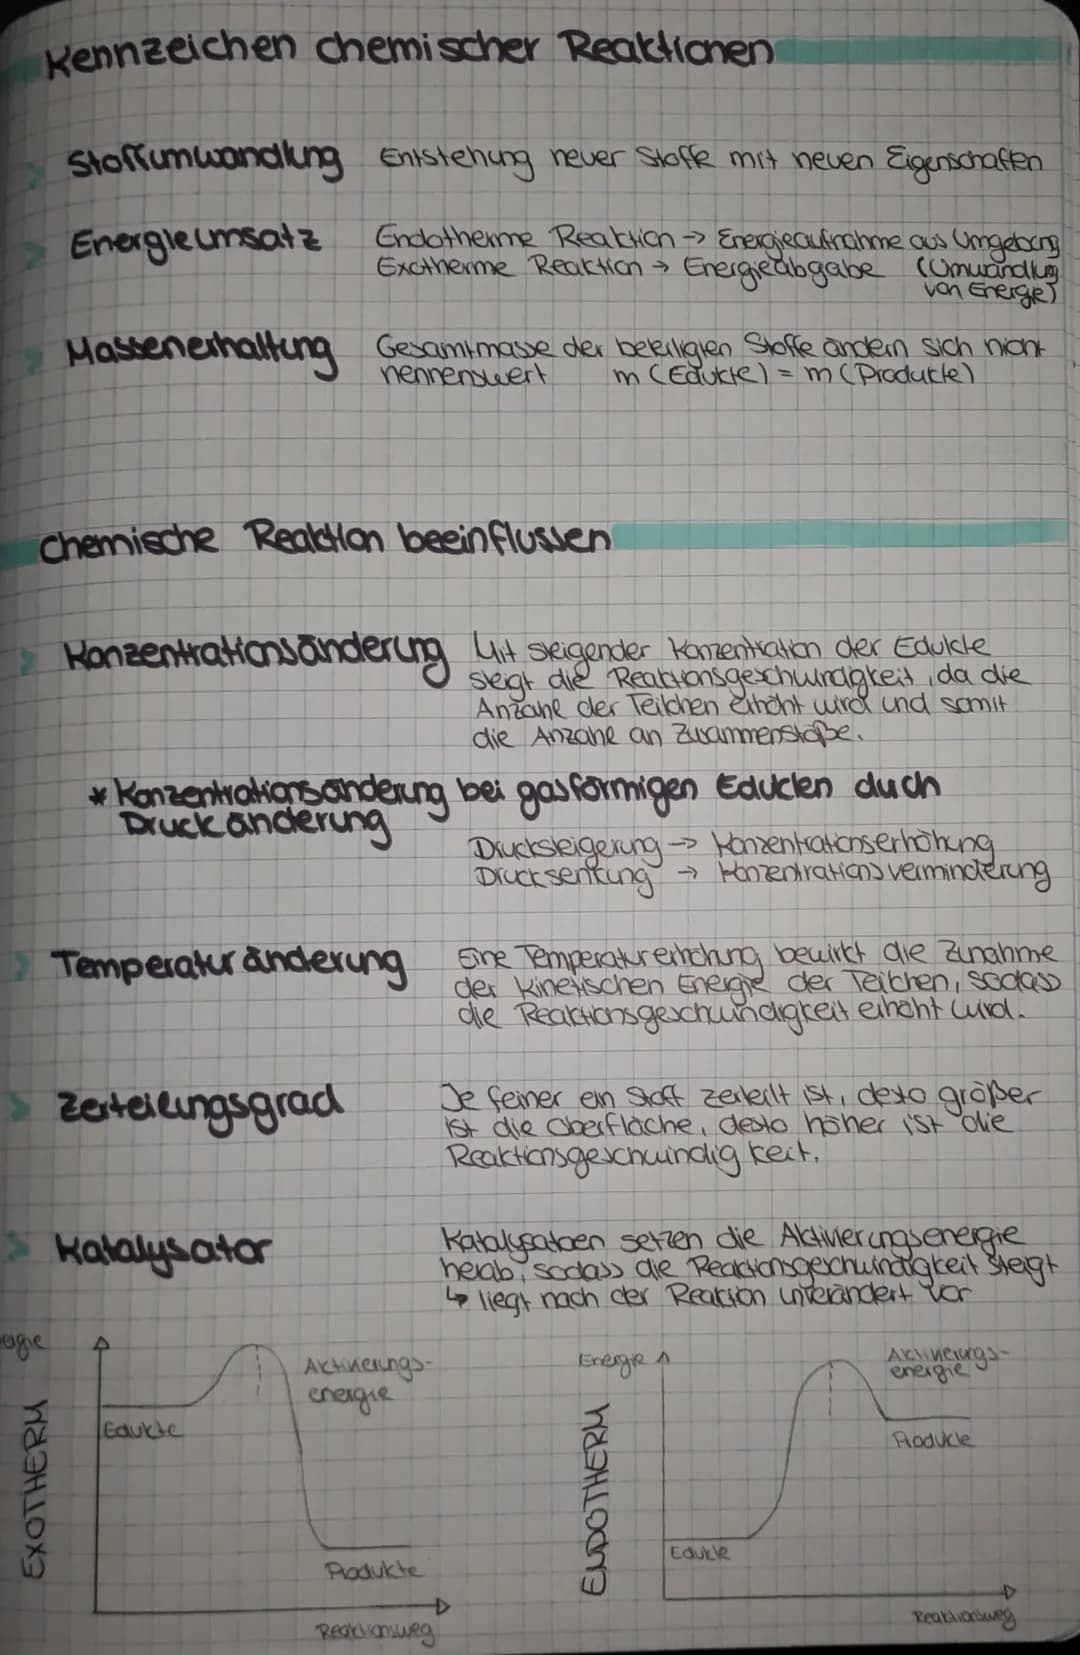 Kennzeichen chemischer Reaktionen
Stoffumwandlung Entstehung neuer Stoffe mit neuen Eigenschaften
Energieumsatz Endotherme Reaktion → Energieaufnahme aus Umgebung
Exotherme Reaktion → Energieabgabe (Umwandlung
von Energie)
Massenerhaltung Gesamtmasse der beteiligten Stoffe ändern sich nicht
nennenswert m (Edukte) = m (Produkte)
Chemische Reaktion beeinflussen
Konzentrationsänderung Mit steigender Konzentration der Edukte
steigt die Reaktionsgeschwindigkeit, da die
Anzahl der Teilchen erhöht wird und somit
die Anzahl an Zusammenstöße.
* Konzentrationsänderung bei gasförmigen Edukten duch
Druckänderung
Drucksteigerung → Konzentrationserhöhung
Drucksenkung → Konzentrationsverminderung
Temperaturänderung Eine Temperaturerhöhung bewirkt die Zunahme
der kinetischen Energie der Teilchen, sodass
die Reaktionsgeschwindigkeit erhöht wird.
Zerteilungsgrad Je feiner ein Stoff zerteilt ist, desto größer
ist die Oberfläche, desto höher ist die
Reaktionsgeschwindigkeit.
Katalysator Katalysatoen setzen die Aktivierungsenergie
herab, sodass die Reaktionsgeschwindigkeit steigt
↳ liegt nach der Reaktion unverändert vor
EXOTHERM
Aktivierungs-
energie
Edukte
Produkte
Reaktionsweg
ENDOTHERM
Energie
Aktivierungs-
energie
Produkte
Edukte
Reaktionsweg